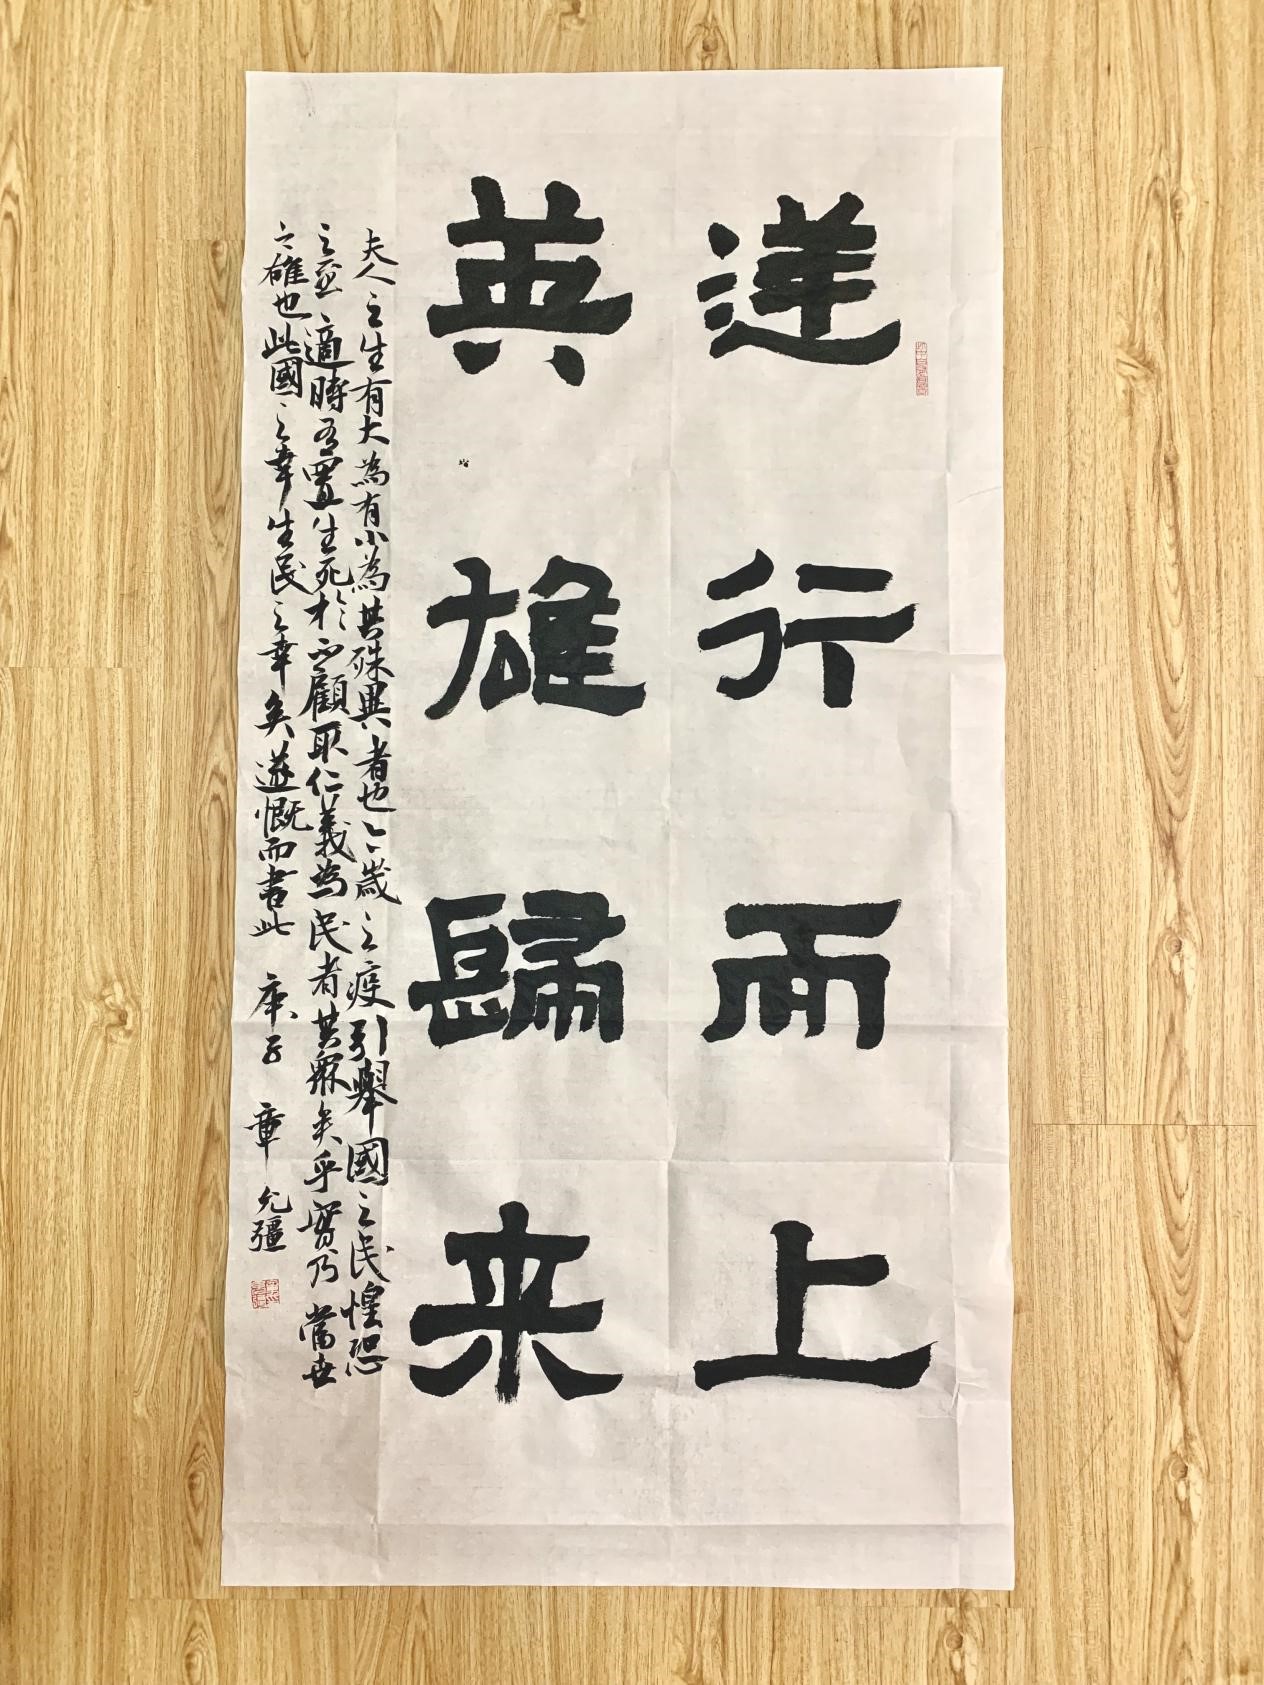 逆行而上
英雄歸来
夫人之生有大為有小為其殊異者也今歲之疫引舉國之民惶恐
之至適時有置生死於不顧取仁義為民者其罕矣乎實乃當世
之雄也此國之幸生民之幸矣遂慨而書此 庚子 章允疆